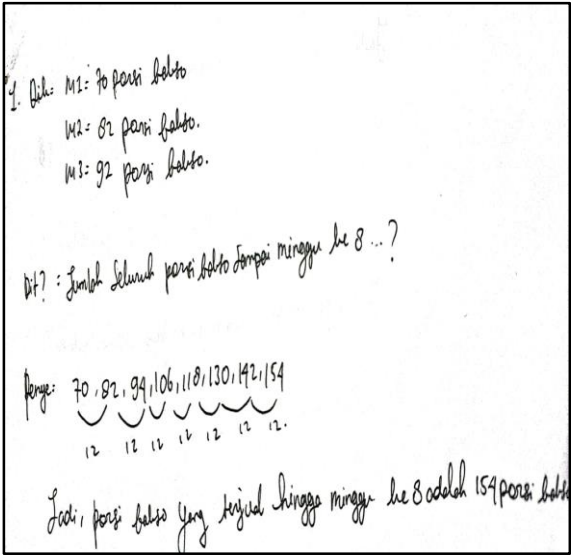 1. Dik: M1: 70 porsi bakso
M2: 82 porsi bakso.
M3: 92 porsi bakso.
Dit? : Jumlah Seluruh porsi bakso sampai minggu ke 8 ...?
Penye: 70, 82, 94, 106, 118, 130, 142, 154
12 12 12 12 12 12 12.
Jadi, porsi bakso yang terjual hingga minggu ke 8 adalah 154 porsi bakso